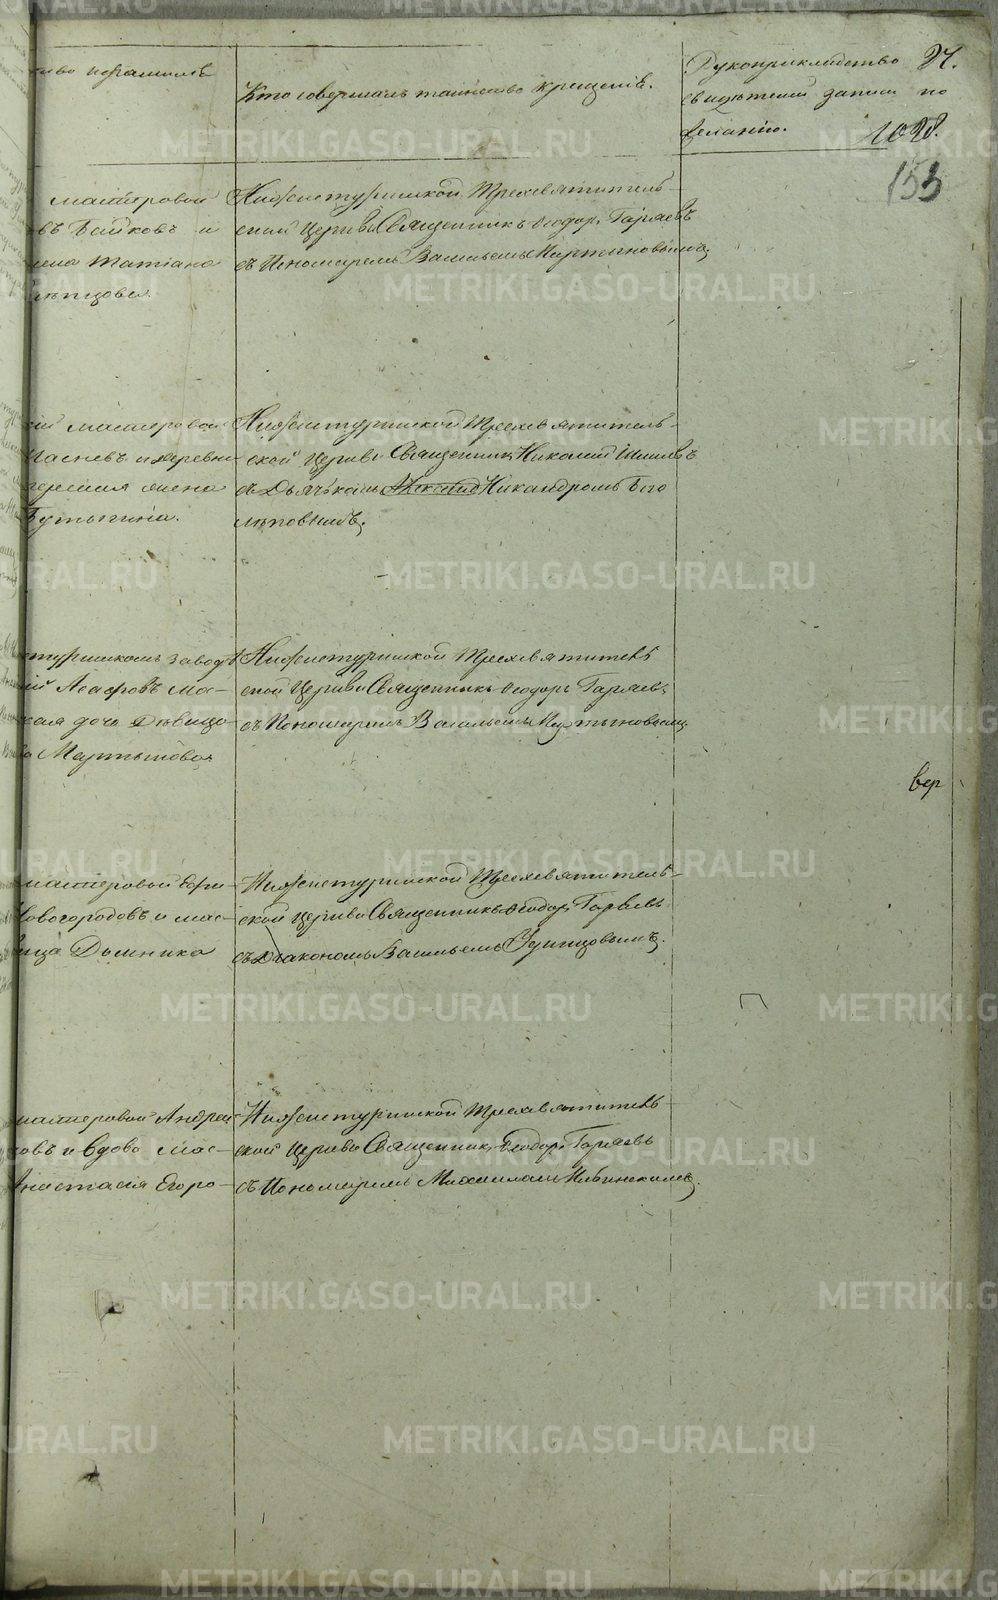 Кто совершалъ таинство крещенія.
Рукоприкладство
свидѣтелей записи по
желанію.
24.
1028.
153
мастеровой
въ Байковъ и
жена Татіана
Нижнетуринской Трехсвятитель-
ской Церкви Священникъ Ѳеодоръ Гаряевъ
съ Пономаремъ Васильемъ Мартыновымъ
мастеровой
Нижнетуринской Трехсвятитель-
ской Церкви Священникъ Николай Шишевъ
съ Дьячкомъ Никандромъ Бого
лѣповымъ.
туринскомъ заводѣ
Агафовъ мас-
кая дочь Дѣвица
Мартынова
Нижнетуринской Трехсвятитель
ской Церкви Священникъ Ѳеодоръ Гаряевъ
съ Пономаремъ Васильемъ Мартыновымъ
вер
мастеровой
Новогородовъ и мас-
вица Домника
Нижнетуринской Трехсвятитель-
ской Церкви Священникъ Ѳеодоръ Гаряевъ
съ Діакономъ Васильемъ Удинцовымъ.
мастеровой Андрей
ковъ и вдова мас-
Анастасія Егоро-
Нижнетуринской Трехсвятитель-
ской Церкви Священникъ Ѳеодоръ Гаряевъ
съ Пономаремъ Михаиломъ
METRIKI.GASO-URAL.RU